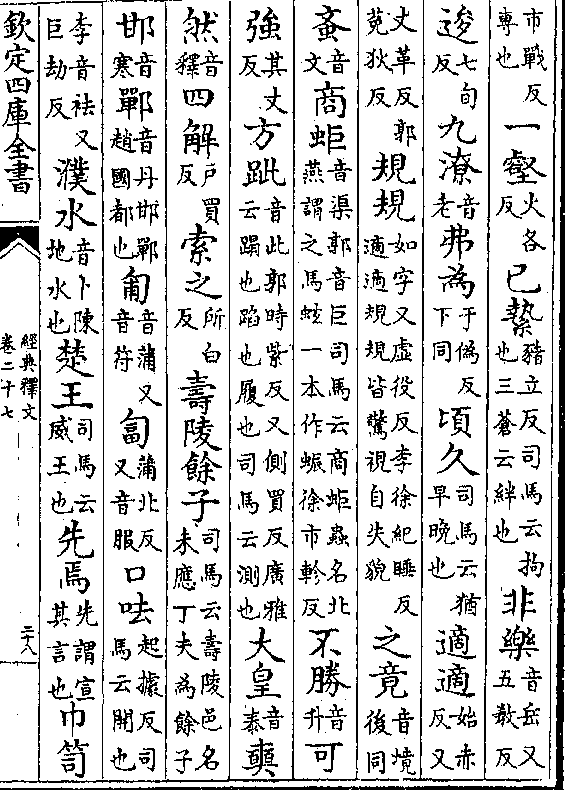 市戰反專也一壑火各反已縶豬立反司馬云拘也三蒼云絆也非樂音岳又五教反
逡七旬反九潦音老弗為于偽反下同頃久司馬云猶早晚也適適始赤反又
丈革反郭菟狄反規規如字又虛役反李徐紀睡反適適規規皆驚視自失貌之竟音境後同
蚉音文商蚷音渠郭音巨司馬云商蚷蟲名北燕謂之馬蚿一本作蜄徐市軫反不勝音升可
強其丈反方跐音此郭時紫反又側買反廣雅云蹋也蹈也履也司馬云測也大皇音泰奭
然音釋四解戶買反索之所白反壽陵餘子司馬云壽陵邑名未應丁夫為餘子
邯音寒鄲音丹邯鄲趙國都也匍音蒲又音符匐蒲北反又音服口呿起據反司馬云開也
李音袪又巨劫反濮水音卜陳地水也楚王司馬云威王也先焉先謂宣其言也巾笥
欽定四庫全書
經典釋文
卷二十七
二十八